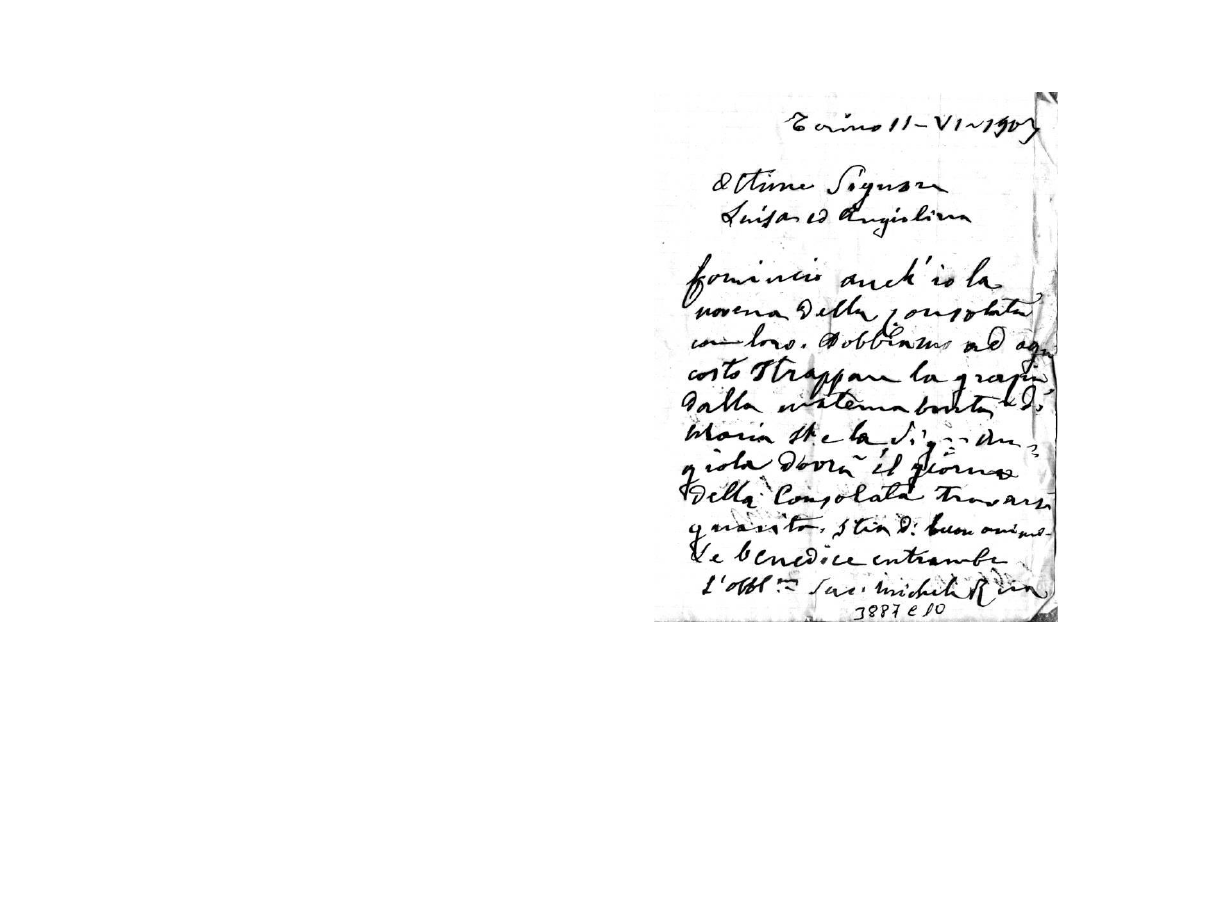 Torino 11-VI-1907
Ottime Signore
Luisa ed Angiolina
Comincio anch'io la
novena della Consolata
con loro. Dobbiamo ad ogni
costo strappare la grazia
dalla materna bontà di
Maria SS. e la Sig.na An-
giola dovrà il giorno
della Consolata trovarsi
guarita. Stia di buon animo.
Le benedice entrambe
L'obbl.mo Sac. Michele Rua
3887 C 10